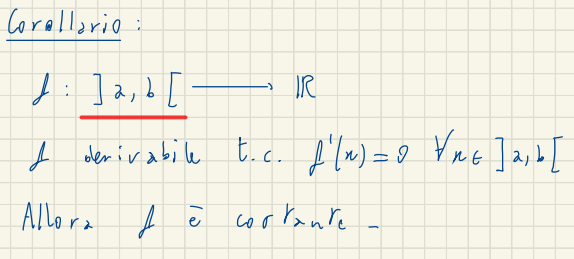 Corollario :
f : ]a, b[ ⟶ ℝ
f derivabile t.c. f'(x) = 0 ∀x ∈ ]a, b[
Allora f è costante -